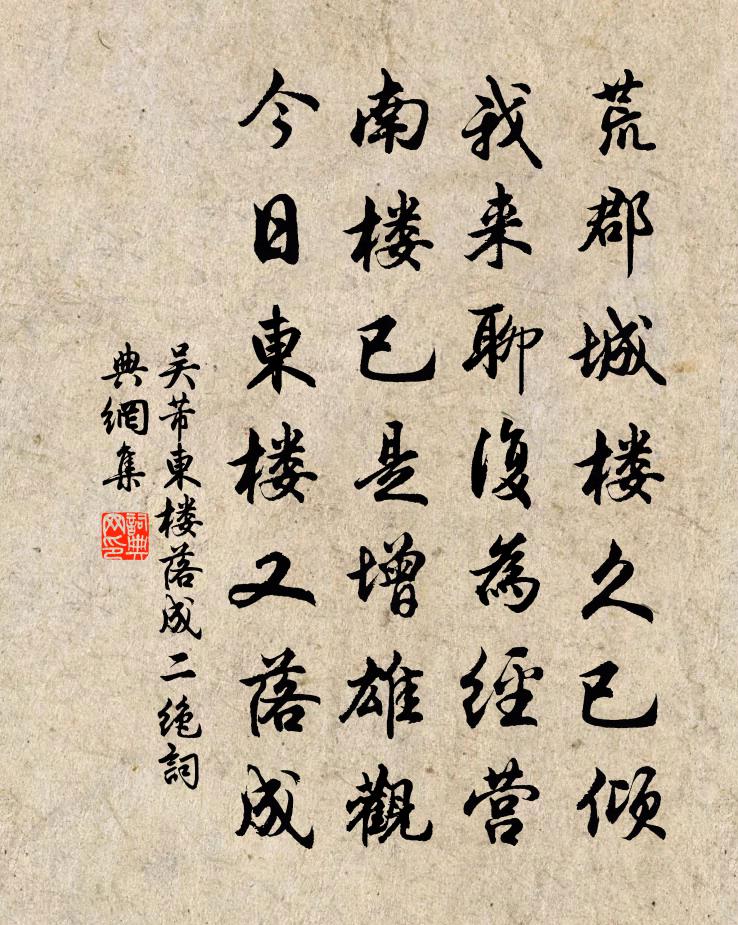 荒郡城楼久已倾
我来聊復為經营
南楼已是增雄觀
今日東楼又落成
吴芾東楼落成二绝詞
典網集
詞典
网印